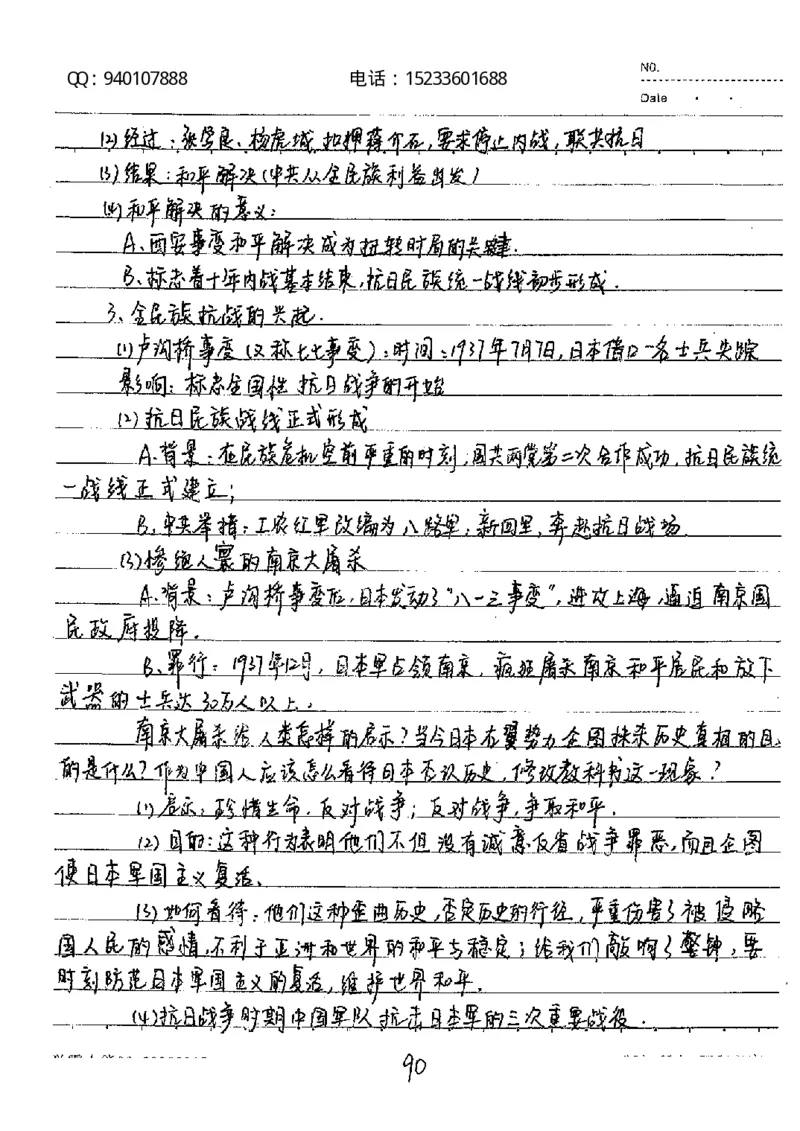 QQ：940107888
电话：15233601688
NO.
Date
(2)经过：张学良、杨虎城扣押蒋介石，要求停止内战，联共抗日
(3)结果：和平解决(中共从全民族利益出发)
(4)和平解决的意义：
A、西安事变和平解决成为扭转时局的关键.
B、标志着十年内战基本结束，抗日民族统一战线初步形成.
3、全民族抗战的兴起.
(1)卢沟桥事变(又称七七事变)：时间：1937年7月7日，日本借口一名士兵失踪
影响：标志全国性抗日战争的开始
(2)抗日民族战线正式形成
A.背景：在民族危机空前严重的时刻，国共两党第二次合作成功，抗日民族统
一战线正式建立；
B、中共举措：工农红军改编为八路军，新四军，奔赴抗日战场.
(3)惨绝人寰的南京大屠杀
A.背景：卢沟桥事变后，日本发动了“八一三事变”，进攻上海，逼迫南京国
民政府投降.
B、罪行：1937年12月，日本军占领南京，疯狂屠杀南京和平居民和放下
武器的士兵达30万人以上.
南京大屠杀给人类怎样的启示？当今日本右翼势力企图抹杀历史真相的目
的是什么？作为中国人应该怎么看待日本否认历史，修改教科书这一现象？
(1)启示：珍惜生命，反对战争；反对战争，争取和平.
(2)目的：这种行为表明他们不但没有诚意反省战争罪恶，而且企图
使日本军国主义复活.
(3)如何看待：他们这种歪曲历史，否定历史的行径，严重伤害了被侵略
国人民的感情，不利于亚洲和世界的和平与稳定；给我们敲响了警钟，要
时刻防范日本军国主义的复活，维护世界和平.
(4)抗日战争时期中国军队抗击日本军的三次重要战役.
90